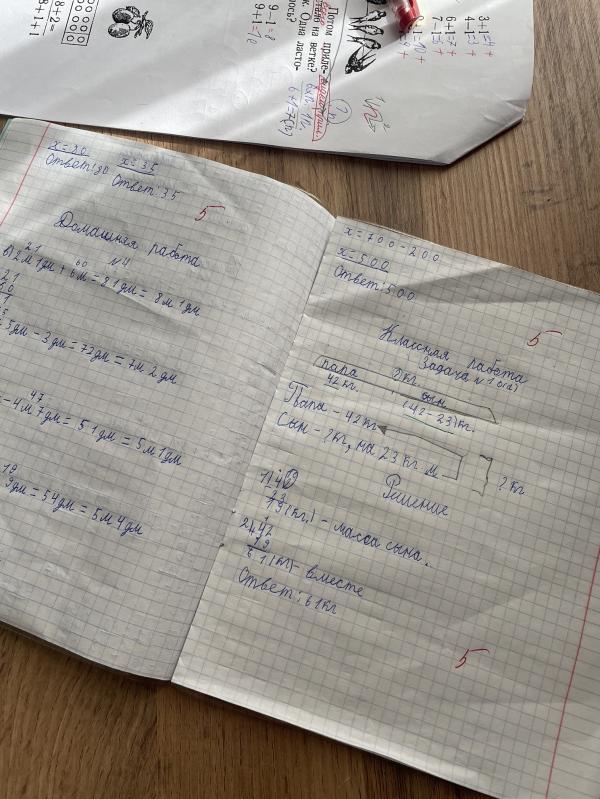 3+1=4+
4-1=3+
6+1=7+
7-1=6+
9-1=8
9+1=10
Потом приле-
на ветке?
Одна ласто-
6+1=7(п)
8-2=
8+1+1
x=20
Ответ:20
x=35
Ответ:35
5
Домашняя работа
№4
21 60
2м1дм+6м=81дм=8м1дм
5дм-3дм=72дм=7м2дм
47
-4м7дм=51дм=5м1дм
19
9дм=54дм=5м4дм
x=700-200
x=500
Ответ:500
5
Классная работа
Задача №1
папа ?кг. сын
42кг. (42-23)кг.
Папа-42кг
Сын-?кг, на 23кг м
?кг
Решение
1) 42
23
19(кг.)-масса сына.
2) 42
19
61(кг)-вместе
Ответ:61кг
5